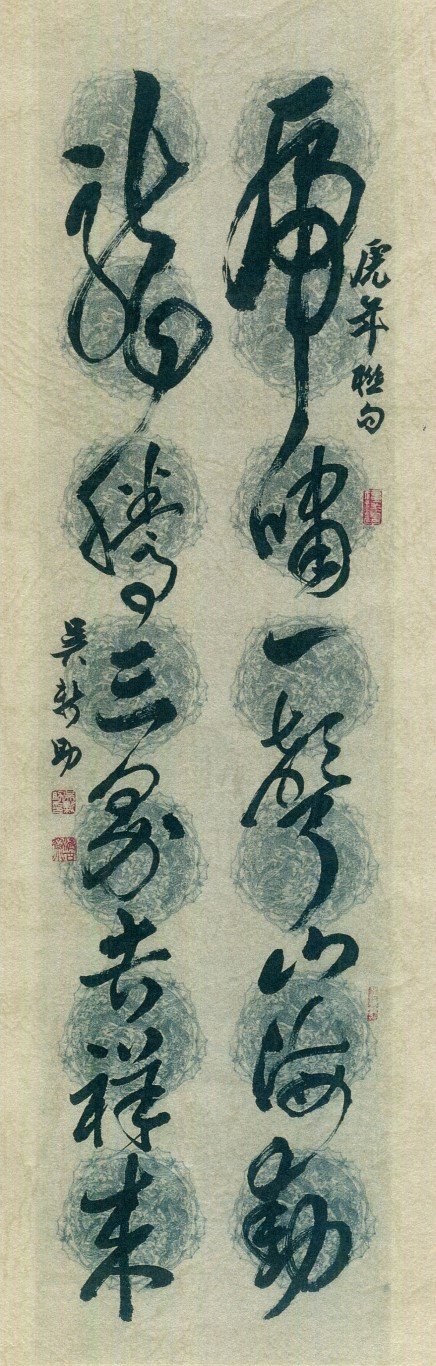 虎年聯句
虎嘯一聲山海動
龍騰三界吉祥來
吳新助